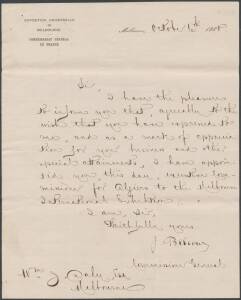 EXPOSITION UNIVERSELLE
DE
MELBOURNE
COMMISSARIAT GENERAL
DE FRANCE
October
Sir,
I have the pleasure
to inform you that, agreeably to the
wish that you have expressed to
me, and as a mark of apprecia
tion for you and other
special attainments, I have appoin
ted you, this day,
for Algiers to the Melbourne
International Exhibition.
I am, Sir,
Faithfully yours,
J.
Commissioner General
Wm J. Daly Esq
Melbourne